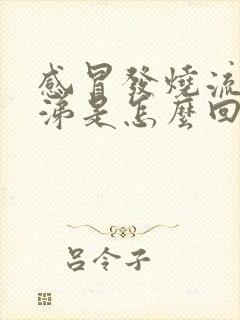 感冒發燒流
涕是怎麼回
呂令子